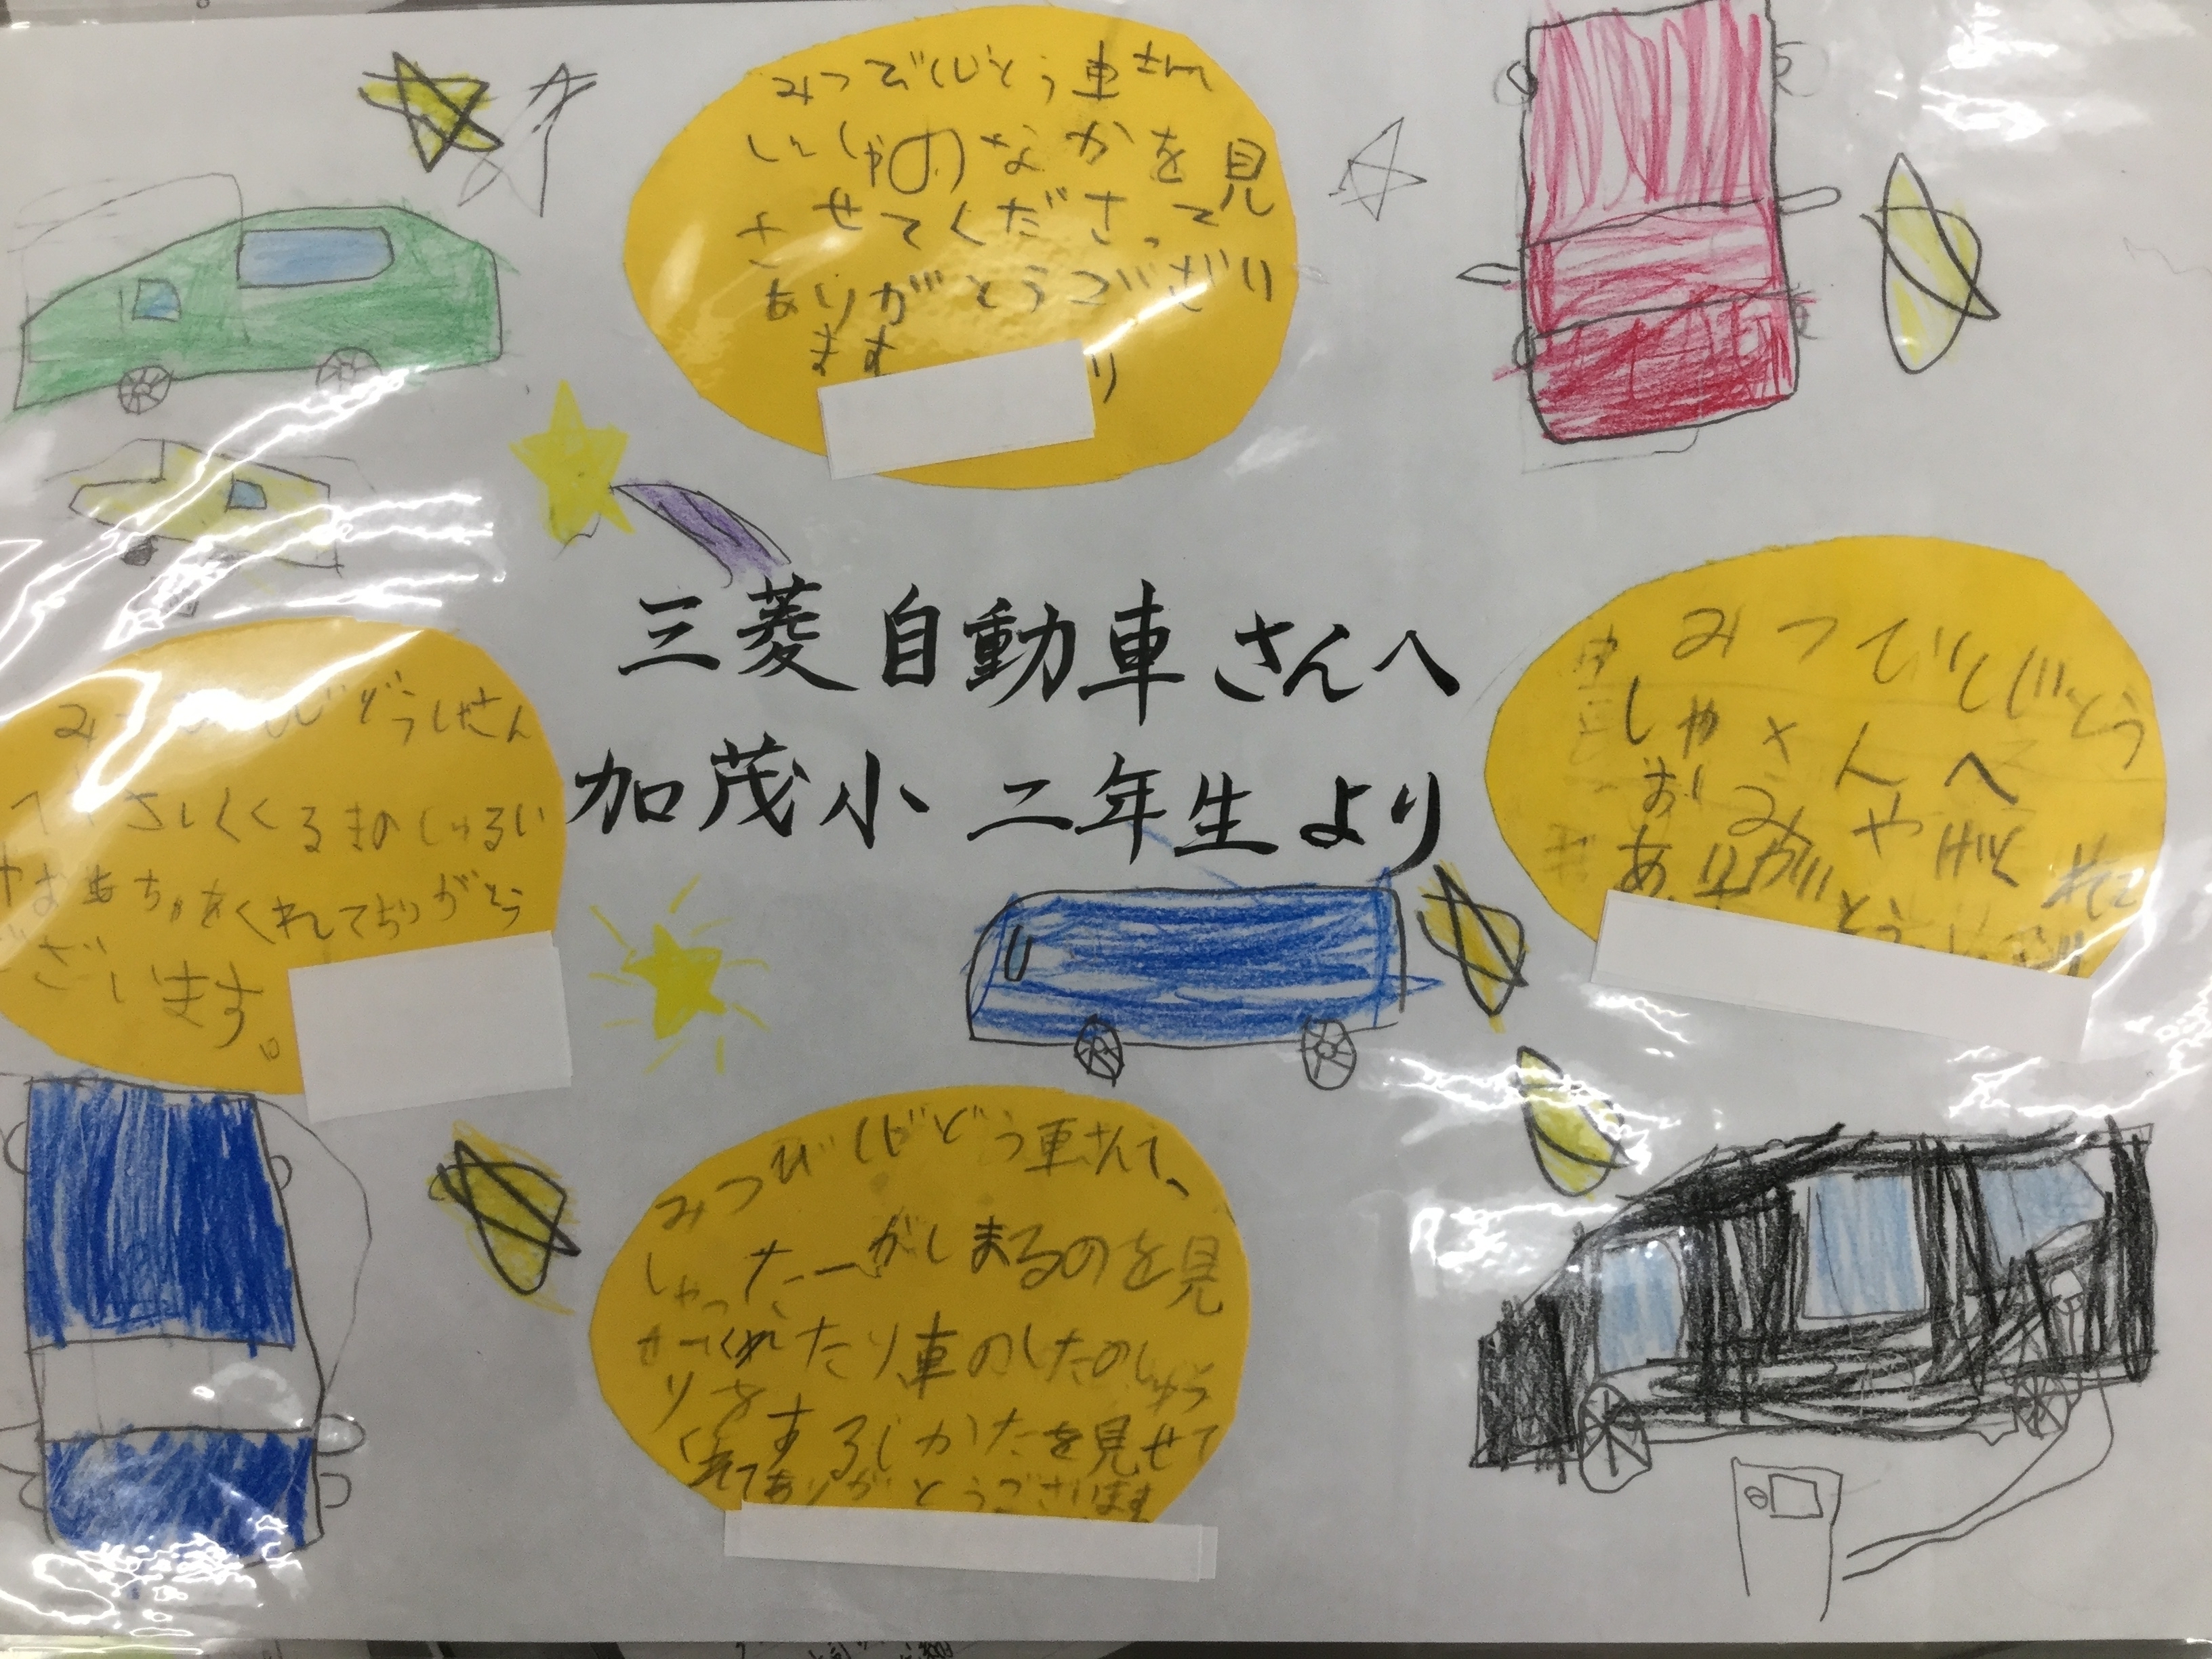 みつびしじどう車さん
しゃのなかを見
させてくださって
ありがとうござい
ます
り
三菱自動車さんへ
加茂小 二年生より
じどうしゃさん
くるまのしゅるい
やおもちゃをくれてありがとう
ございます。
みつびしじどう
しゃさんへ
おみやげくれて
ありがとうござい
みつびしじどう車さんへ、
しゃったーがしまるのを見
せてくれたり車のしたのしゅう
りをするしかたを見せて
くれてありがとうございます